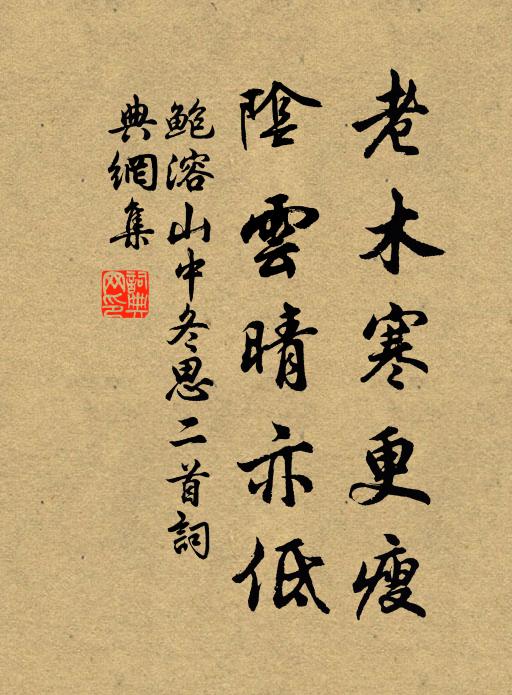 老木寒更瘦
陰雲晴亦低
鲍溶山中冬思二首詞
典網集
詞典
网印